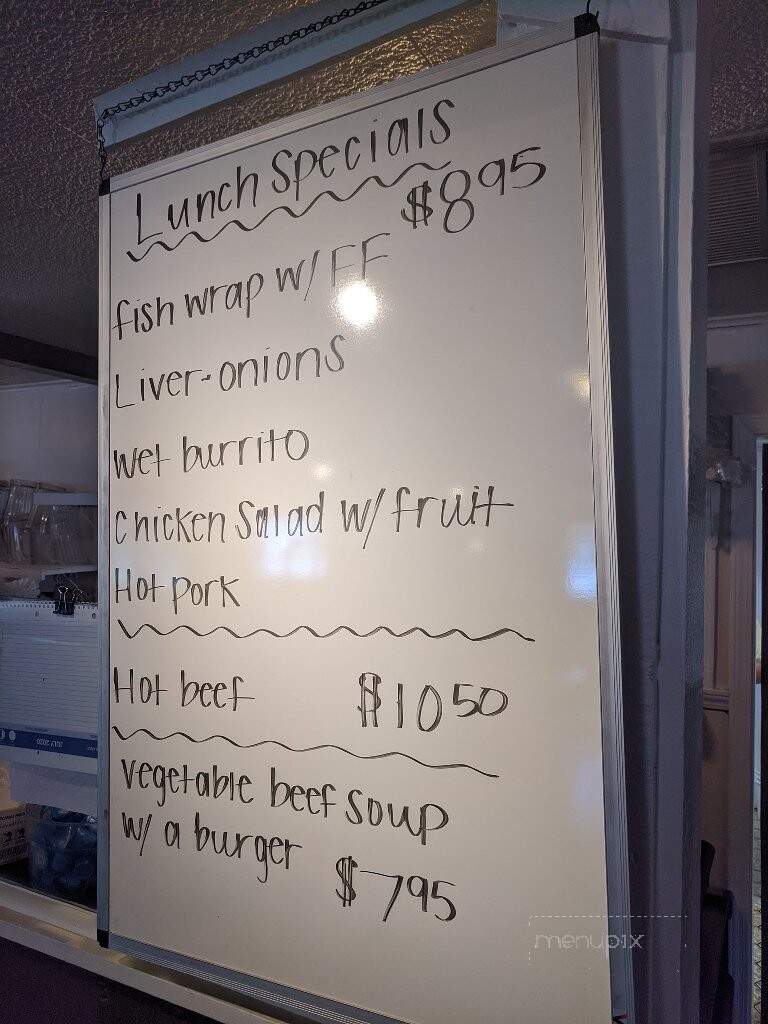 Lunch Specials
$8.95
fish wrap w/ FF
Liver-onions
wet burrito
Chicken Salad w/ fruit
Hot pork
Hot beef $10.50
vegetable beef soup
w/ a burger
$7.95
menupix